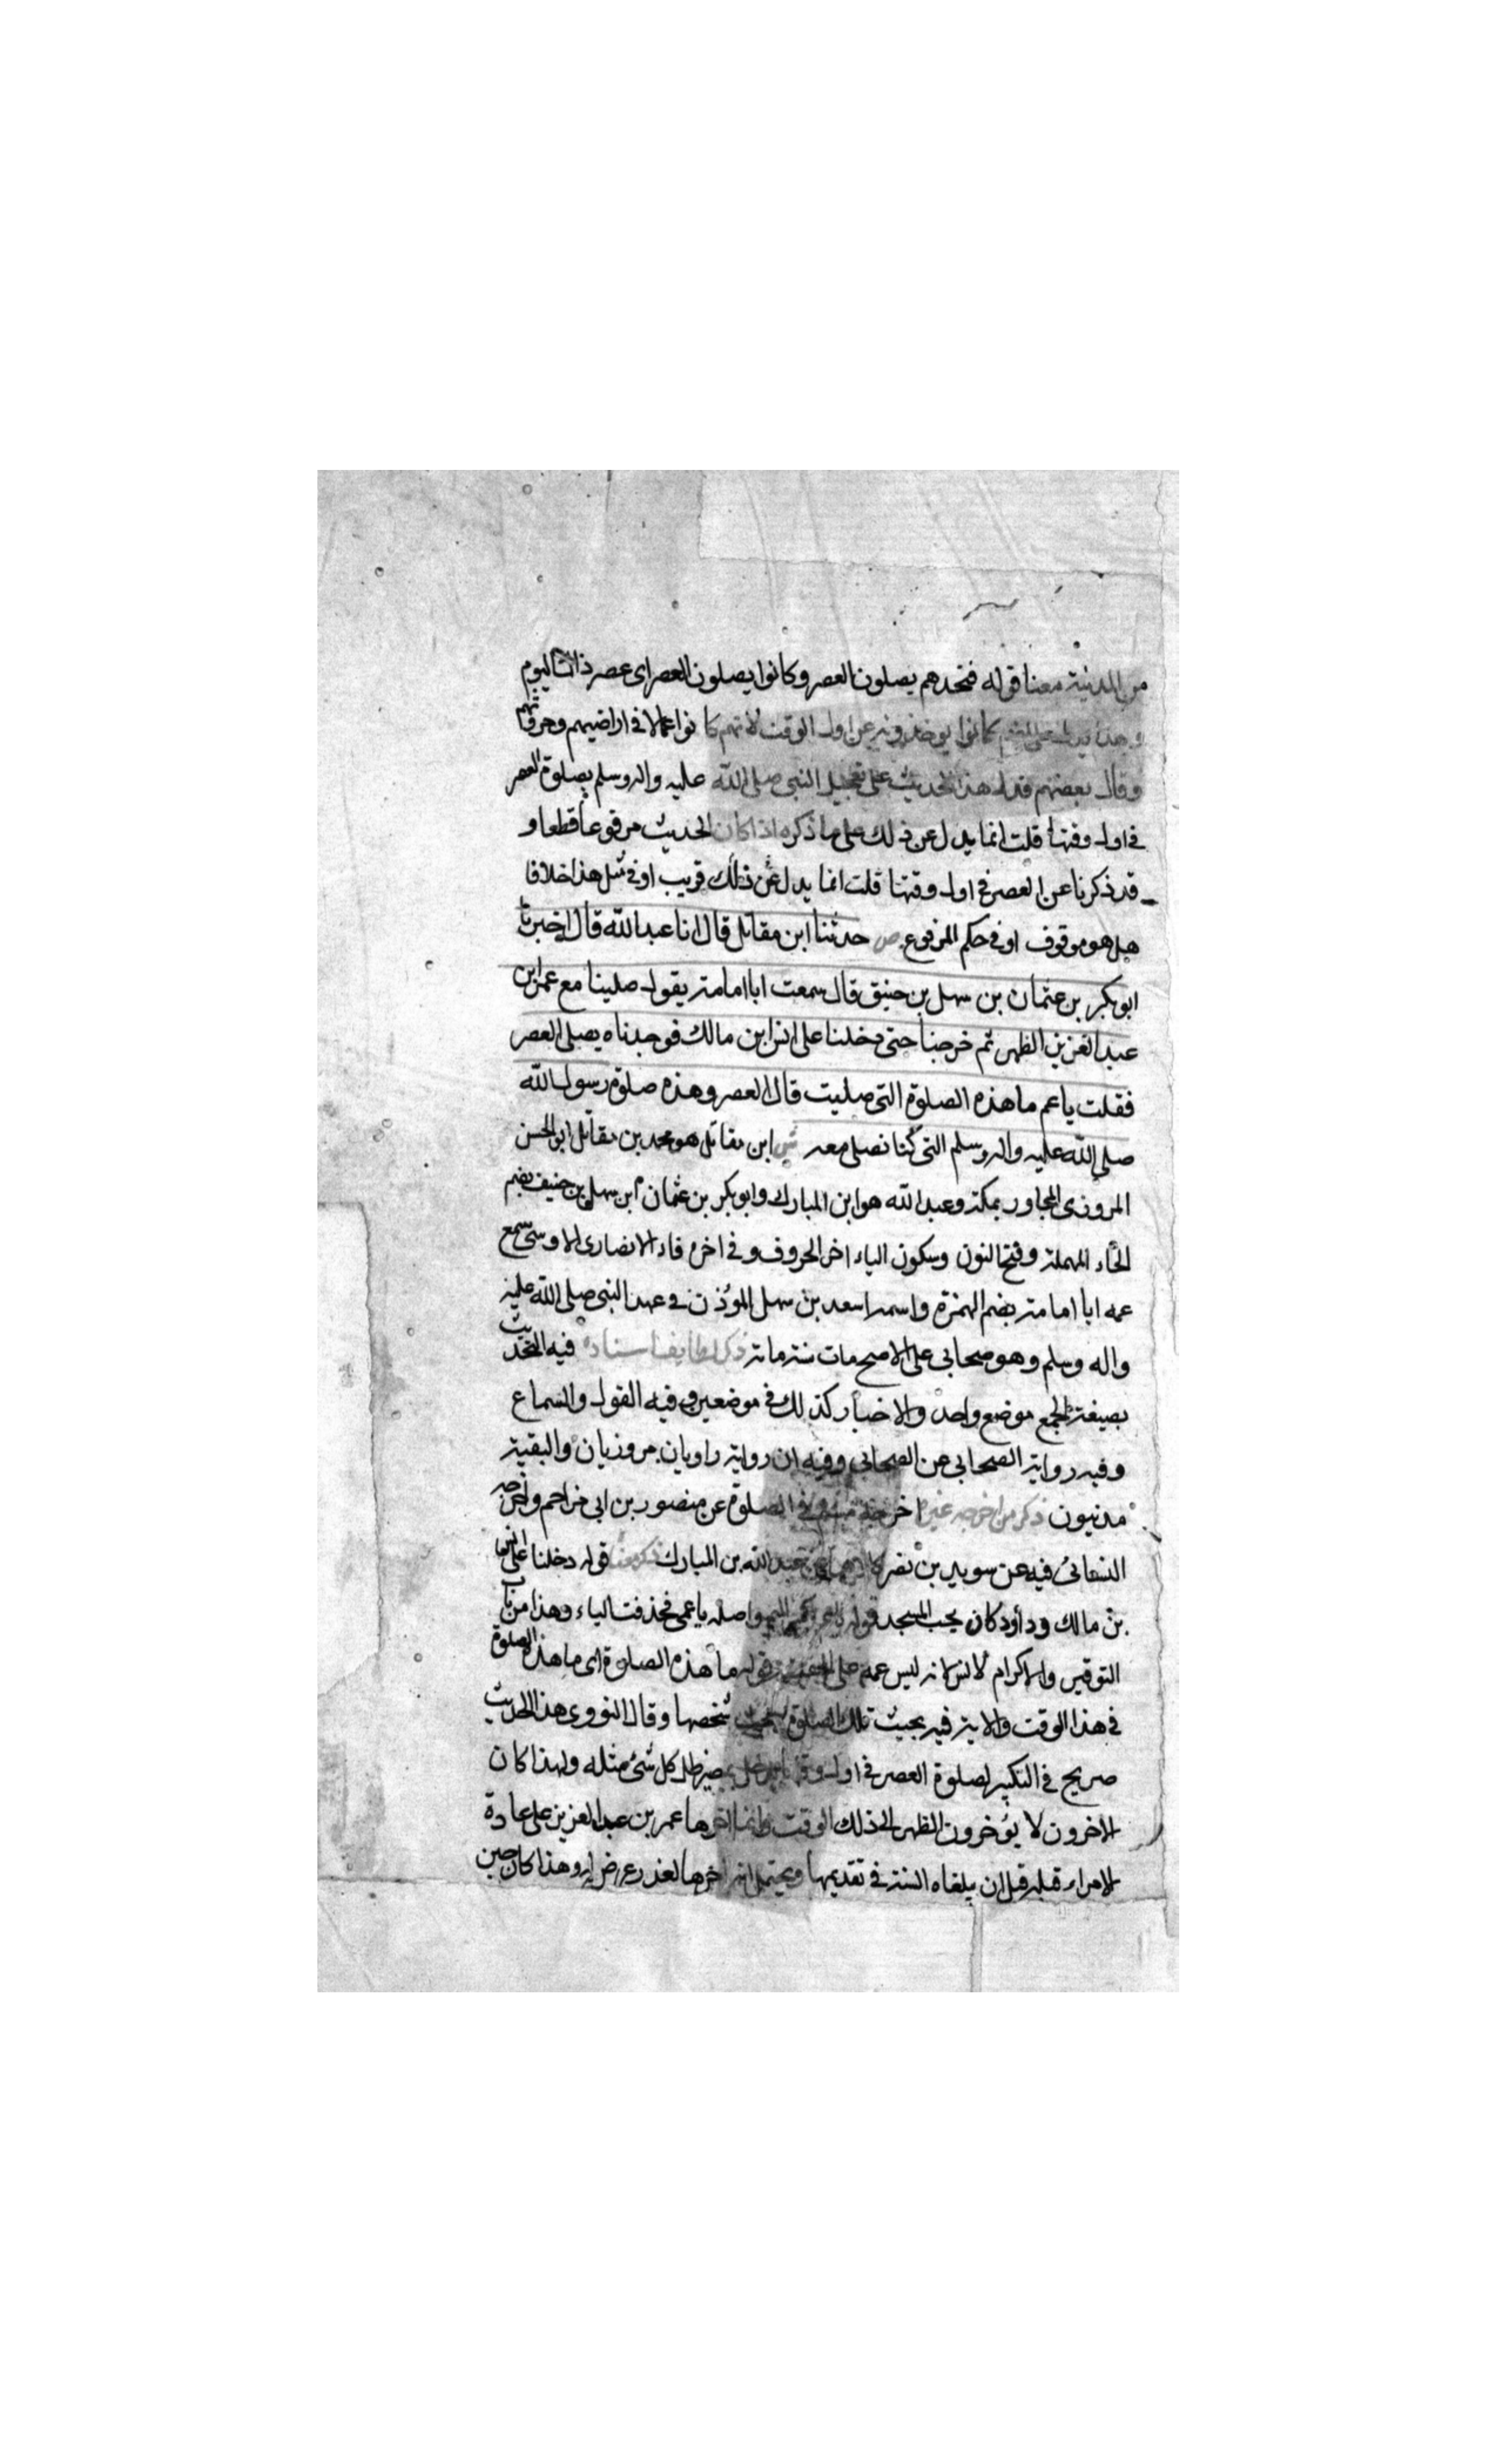 من المدينة معنا قوله فتجدهم يصلون العصر وكانوا يصلون العصر اى عصر ذلك اليوم
وهذا يدل على انهم كانوا يوخرونه عن اول الوقت لانهم كانوا عمالا فى اراضيهم وحروثهم
وقال بعضهم فدل هذا الحديث على تعجيل النبى صلى الله عليه واله وسلم بصلوة العصر
فى اول وقتها قلت انما يدل عن ذلك على ما ذكره اذا كان الحديث مرفوعا قطعا و
قد ذكرنا عن العصر فى اول وقتها قلت انما يدل عن ذلك قريب او فى مثل هذا خلافا
هل هو موقوف او فى حكم المرفوع ص حدثنا ابن مقاتل قال انا عبد الله قال اخبرنا
ابو بكر بن عثمان بن سهل بن حنيف قال سمعت ابا امامة يقول صلينا مع عمر ابن
عبد العزيز الظهر ثم خرجنا حتى دخلنا على انس ابن مالك فوجدناه يصلى العصر
فقلت يا عم ما هذه الصلوة التى صليت قال العصر وهذه صلوة رسول الله
صلى الله عليه واله وسلم التى كنا نصلى معه ش ابن مقاتل هو محمد بن مقاتل ابو الحسن
المروزى المجاور بمكة وعبد الله هو ابن المبارك وابو بكر بن عثمان ابن سهل بن حنيف بضم
الحاء المهملة وفتح النون وسكون الياء اخر الحروف وفى اخره فاء الانصارى الاوسى سمع
عمه ابا امامة بضم الهمزة واسمه اسعد بن سهل المؤذن فى عهد النبى صلى الله عليه
واله وسلم وهو صحابى على الاصح مات سنة مائة ذكر لطايف اسناده فيه التحديث
بصيغة الجمع موضع واحد والاخبار كذلك فى موضعين وفيه القول والسماع
وفيه رواية الصحابى عن الصحابى وفيه ان رواية راويان مروزيان والبقية
مدنيون ذكر من اخرجه غيره اخرجه مسلم فى الصلوة عن منصور بن ابى مزاحم واخرجه
النسائى فيه عن سويد بن نصر كلاهما عن عبد الله بن المبارك ذكر معناه قوله دخلنا على انس
بن مالك وداره كان بجنب المسجد قوله يا عم واصله يا عمى فحذفت الياء وهذا من باب
التوقير والاكرام لانس لانه ليس عمه على الحقيقة قوله ما هذه الصلوة اى ما هذه الصلوة
فى هذا الوقت والاية فيه بحيث تلك الصلوة شخصها وقال النووى هذا الحديث
صريح فى التبكير لصلوة العصر فى اول وقتها كل شئ مثله ولهذا كان
الاخرون لا يؤخرون الظهر الى ذلك الوقت وانما اخرها عمر بن عبد العزيز على عادة
الامراء قبله قبل ان يلغاه السنة فى تقديمها ويحتمل انه اخرها لعذر عرض له وهذا كان حين